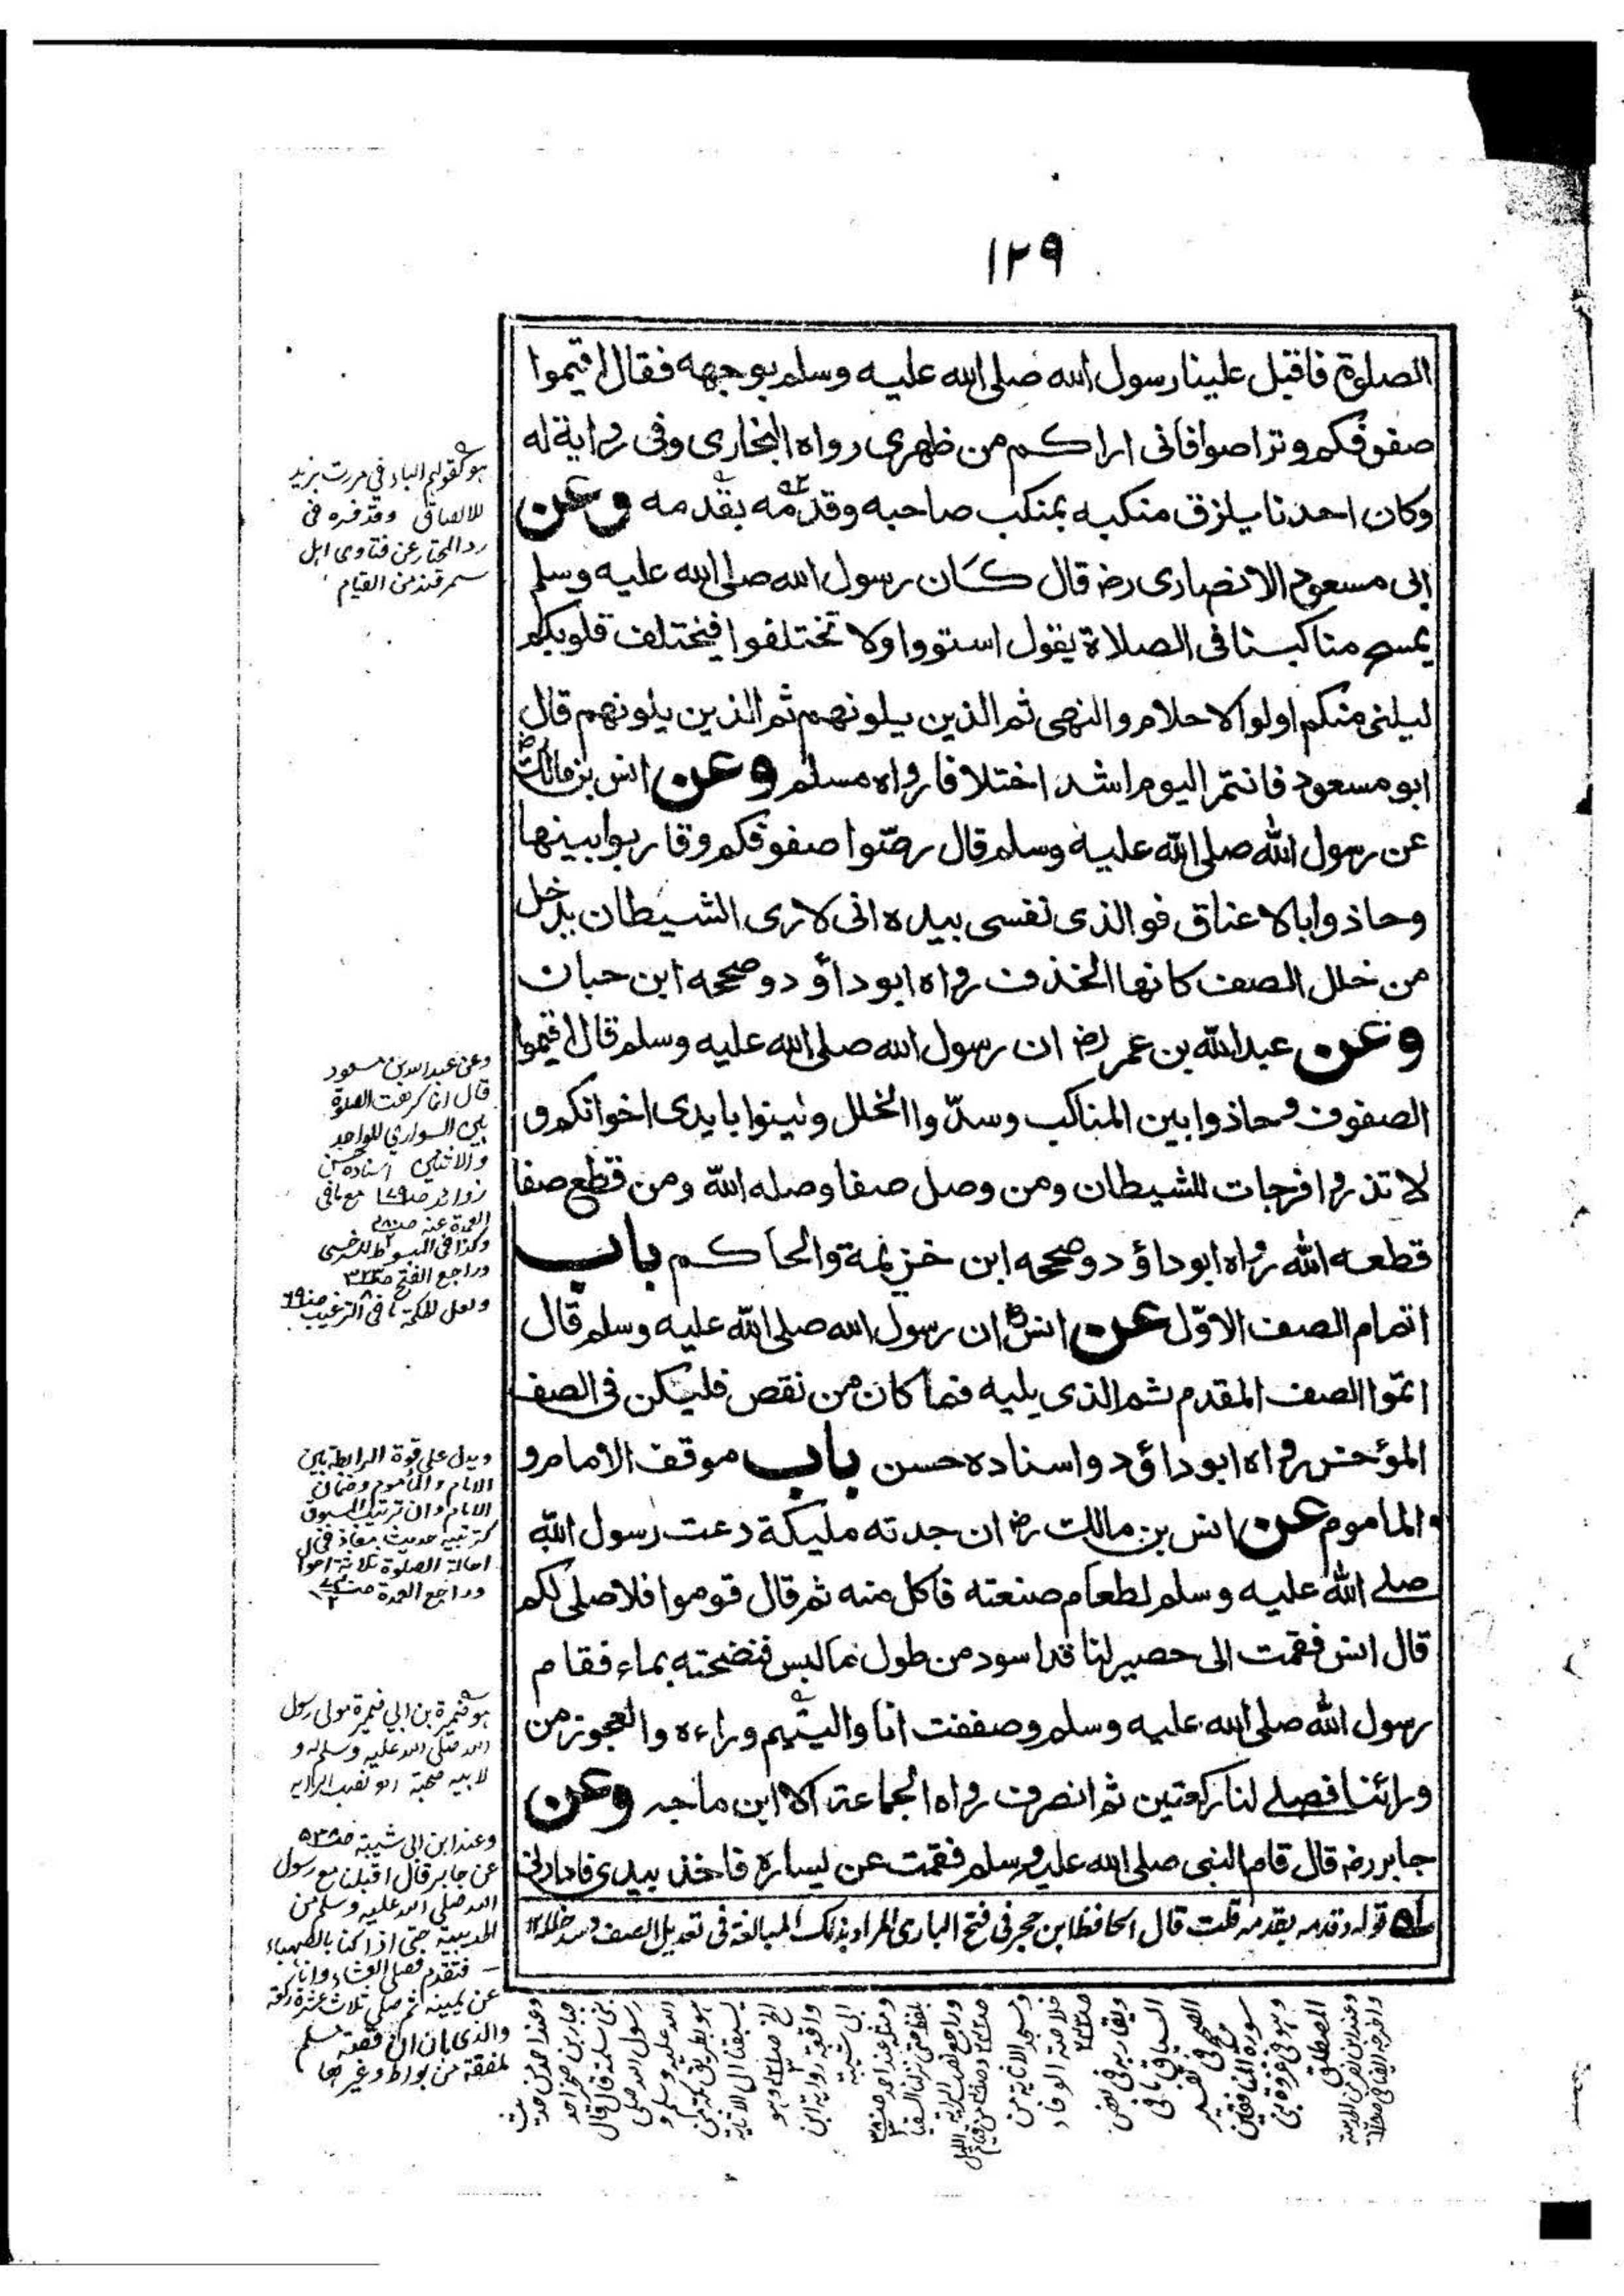 ١٢٩
الصلوة فاقبل علينا رسول الله صلى الله عليه وسلم بوجهه فقال اقيموا
صفوفكم وتراصوا فانى اراكم من ظهرى رواه البخارى وفى رواية له
وكان احدنا يلزق منكبه بمنكب صاحبه وقدمه بقدمه وعن
ابى مسعود الانصارى رضـ قال كان رسول الله صلى الله عليه وسلم
يمسح مناكبنا فى الصلاة يقول استووا ولا تختلفوا فيختلف قلوبكم
ليلنى منكم اولوا الاحلام والنهى ثم الذين يلونهم ثم الذين يلونهم قال
ابو مسعود فانتم اليوم اشد اختلافا رواه مسلم وعن انس بن مالك رضـ
عن رسول الله صلى الله عليه وسلم قال رصّوا صفوفكم وقاربوا بينها
وحاذوا بالاعناق فوالذى نفسى بيده انى لارى الشيطان يدخل
من خلل الصف كانها الخذف رواه ابو داؤد وصححه ابن حبان
وعن عبد الله بن عمر رضـ ان رسول الله صلى الله عليه وسلم قال اقيموا
الصفوف وحاذوا بين المناكب وسدّوا الخلل ولينوا بايدى اخوانكم و
لا تذروا فرجات للشيطان ومن وصل صفا وصله الله ومن قطع صفا
قطعه الله رواه ابو داؤد وصححه ابن خزيمة والحاكم باب
اتمام الصف الاوّل عن انس رضـ ان رسول الله صلى الله عليه وسلم قال
اتمّوا الصف المقدم ثم الذى يليه فما كان من نقص فليكن فى الصف
المؤخر رواه ابو داؤد واسناده حسن باب موقف الامام و
الماموم عن انس بن مالك رضـ ان جدته مليكة دعت رسول الله
صلے الله عليه وسلم لطعام صنعته فاكل منه ثم قال قوموا فلاصلى لكم
قال انس فقمت الى حصير لنا قد اسود من طول ما لبس فنضحته بماء فقام
رسول الله صلى الله عليه وسلم وصففت انا واليتيم وراءه والعجوز من
ورائنا فصلے لنا ركعتين ثم انصرف رواه الجماعة الا ابن ماجه وعن
جابر رضـ قال قام النبى صلى الله عليه وسلم فقمت عن يساره فاخذ بيدى فادارنى
قوله وقدمه بقدمه قلت قال الحافظ ابن حجر فى فتح البارى المراد بذلك المبالغة فى تعديل الصف وسد خلله ١٢
هو كقولهم الباء فى مررت بزيد
للالصاق وقد فسره فى
رد المحتار عن فتاوى اهل
سمرقند من القيام
وعن عبد الله بن مسعود
قال انما كرهت الصلوة
بين السوارى للواحد
والاثنين اسناده حسن
زوائد صـ١٧٩ مع ما فى
العمدة عنه
وكذا فى المبسوط للسرخسى
وراجع الفتح
ولعل الحكمة ما فى الترغيب
ويدل على قوة الرابطة بين
الامام والماموم وضمان
الامام وان ترتيب المسبوق
كترتيبه حديث معاذ فى
احالة الصلوة ثلاثة احوال
وراجع العمدة
هو ضميرة بن ابى ضميرة مولى رسول
الله صلى الله عليه وسلم له و
لابيه صحبة
وعند ابن ابى شيبة
عن جابر قال اقبلنا مع رسول
الله صلى الله عليه وسلم من
الحديبية حتى اذا كنا بالصهباء
فتقدم فصلى العشاء وانا
عن يمينه ثم صلى ثلاث عشرة ركعة
والذى بان ان قصة مسلم
ملفقة من بواط وغيرها
وعند احمد من حديث
جابر بن صخر احد
بنى سلمة قال قال
رسول الله صلى
الله عليه وسلم و
هو بطريق مكة من
يسبقنا الى الاثاية